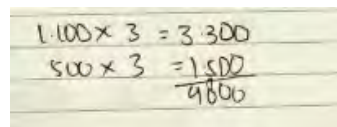 1.100 x 3 = 3.300
500 x 3 = 1500
4800